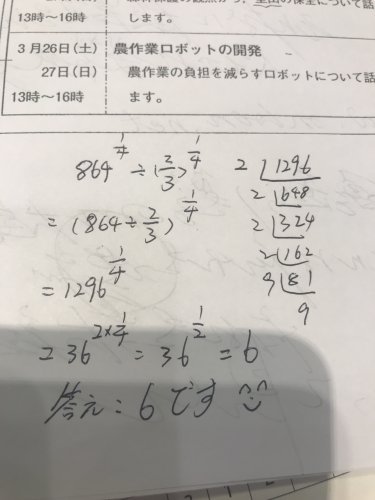 13時〜16時
します。
3月26日(土) 農作業ロボットの開発
27日(日) 農作業の負担を減らすロボットについて話
13時〜16時 ます。
864^{1/4} ÷ (2/3)^{1/4}
= (864 ÷ 2/3)^{1/4}
= 1296^{1/4}
= 36^{2×1/4} = 36^{1/2} = 6
答え:6です ^^
2 1296
2 648
2 324
2 162
9 81
9